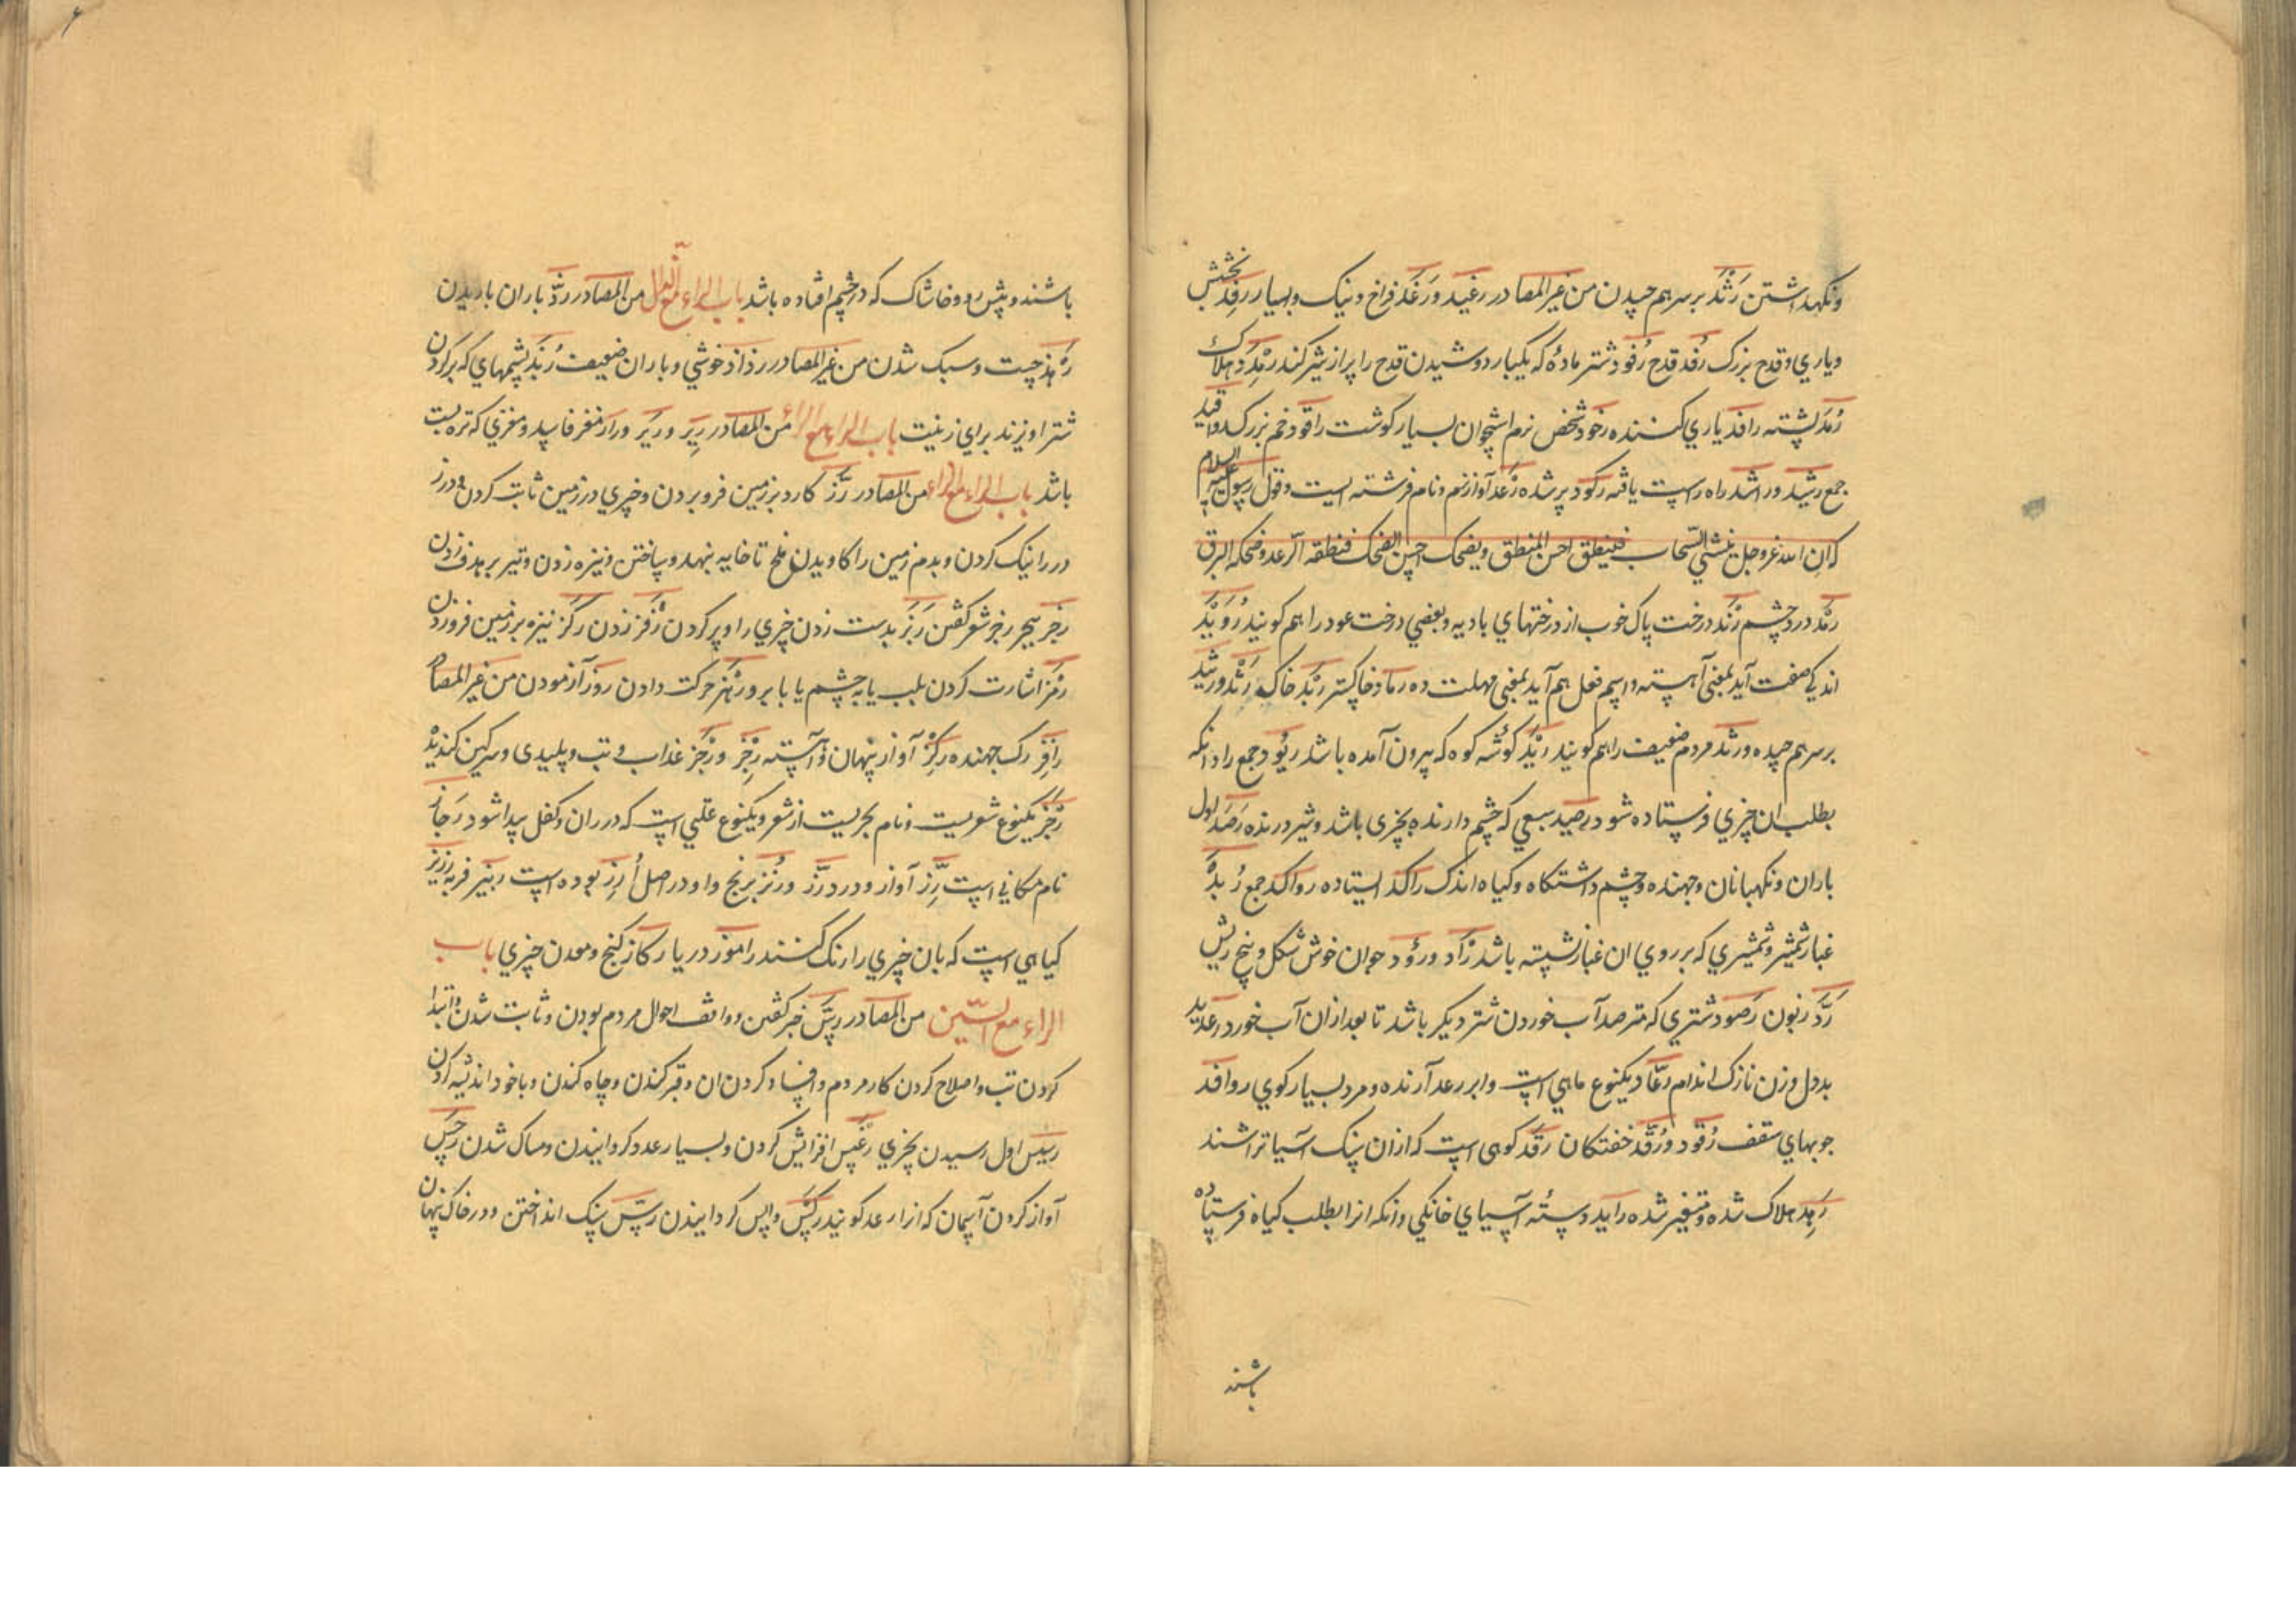 ونکهداشتن رَثْد برسرهم چیدن من غیر المصادر رغید ورَغَد فراخ ونیک وبسیار رِفْد بخشش
ویاري وقدح بزرک رَفْد قدح رُفود شتر مادهٔ که یکبار دوشیدن قدح را پر از شیر کند رَمْد هلاک
رُمَد پشته رافد یاري کننده رخود شخص نرم استخوان بسیار کوشت راقود خم بزرک رواقید
جمع رشید وراشد راه راست یافته رکود پر شده رَعد آواز نرم ونام فرشته ایست وقول رسول علیه السلام
که ان الله عزوجل ینشئ السّحاب فینطق احسن المنطق ویضحک احسن الضحک فنطقه الرّعد وضحکه البرق
رمَد درد چشم رَنْد درخت پاک خوب از درختهاي بادیه وبعضي درخت عود را هم کویند رُوَیْد
اندکي صفت آید بمعنی آهسته واسم فعل هم آید بمعنی مهلت ده رماد خاکستر رَبَد خاک رَثَد ورثید
برسرهم چیده ورثد مردم ضعیف را هم کویند رَیْد کوشه کوه که بیرون آمده باشد ریود جمع راد انکه
بطلب ان چیزي فرستاده شود رصید سبعي که چشم دارنده بچیزی باشد وشیر درنده رَصَد اول
باران ونکهبانان وجهنده وچشم داشتکاه وکیاه اندک راکد ایستاده رواکد جمع رُبَد
غبار شمشیر وشمشیري که بر روي ان غبار نشسته باشد رَأد ورؤد جوان خوش شکل وبیخ ریش
رَدّ زبون رَصود شتري که مترصد آب خوردن شتر دیکر باشد تا بعد از ان آب خورد رعدید
بددل وزن نازک اندام رعّاد یکنوع ماهي است وابر رعد آرنده ومرد بسیار کوي روافد
چوبهاي سقف رُقود ورُقَّد خفتکان رَقْد کوهی است که از ان سنک آسیا تراشند
رَمِد هلاک شده ومتغیر شده راید دستهٔ آسیاي خانکي وانکه انرا بطلب کیاه فرستاده
باشند
باشند وپیش رو وخاشاک که در چشم افتاده باشد باب الراء مع الذال من المصادر رذّ باران باریدن
رَبَذ چست وسبک شدن من غیر المصادر رذاذ خوشي وباران ضعیف رُبَذ پشمهاي که بر کردن
شتر اویزند براي زینت باب الراء مع الراء من المصادر رِیر ورَیر ورار مغز فاسد ومغزي که تره بست
باشد باب الراء مع الزاء من المصادر رَزّ کارد بزمین فرو بردن وچیزي در زمین ثابت کردن ودرز
در را نیک کردن وبدم زمین را کاویدن ملخ تا خایه بنهد وساختن ونیزه زدن وتیر بر هدف زدن
رجز بیجر رجز شعر کفتن رَبَز بدست زدن چیزي را وپر کردن رَفْز زدن رکز نیزه بر زمین فرو زدن
رَمْز اشارت کردن بلب یا بچشم یا بابرو رَهْز حرکت دادن روز آزمودن من غیر المصادر
رافِز رک جهنده رِکْز آواز پنهان وآهسته رِجْز ورُجْز عذاب وتب وپلیدی وسرکین کندیده
رَجَز یکنوع شعریست ونام بحریست از شعر ویکنوع علتي است که در ران وکفل پیدا شود رَجّاز
نام مکاني است رِزّ آواز ودرد رَزّ ورُنْز برنج واو در اصل اُرز بوده است ربیز فربه رزیز
کیاهي است که بان چیزي را رنک کنند راموز دریا رکاز کنج ومعدن چیزي باب
الراء مع السّین من المصادر رسّ خبر کفتن وواقف احوال مردم بودن وثابت شدن وابتدا
کردن تب واصلاح کردن کار مردم وافساد کردن ان وقبر کندن وچاه کندن وباخود اندیشه کردن
رسیس اول رسیدن بچیزي رغس افزایش کردن وبسیار عدد کردانیدن ومساک شدن رَجس
آواز کردن آسمان که انرا رعد کویند رکس واپس کردانیدن رسّ سنک انداختن ودر خاک پنهان